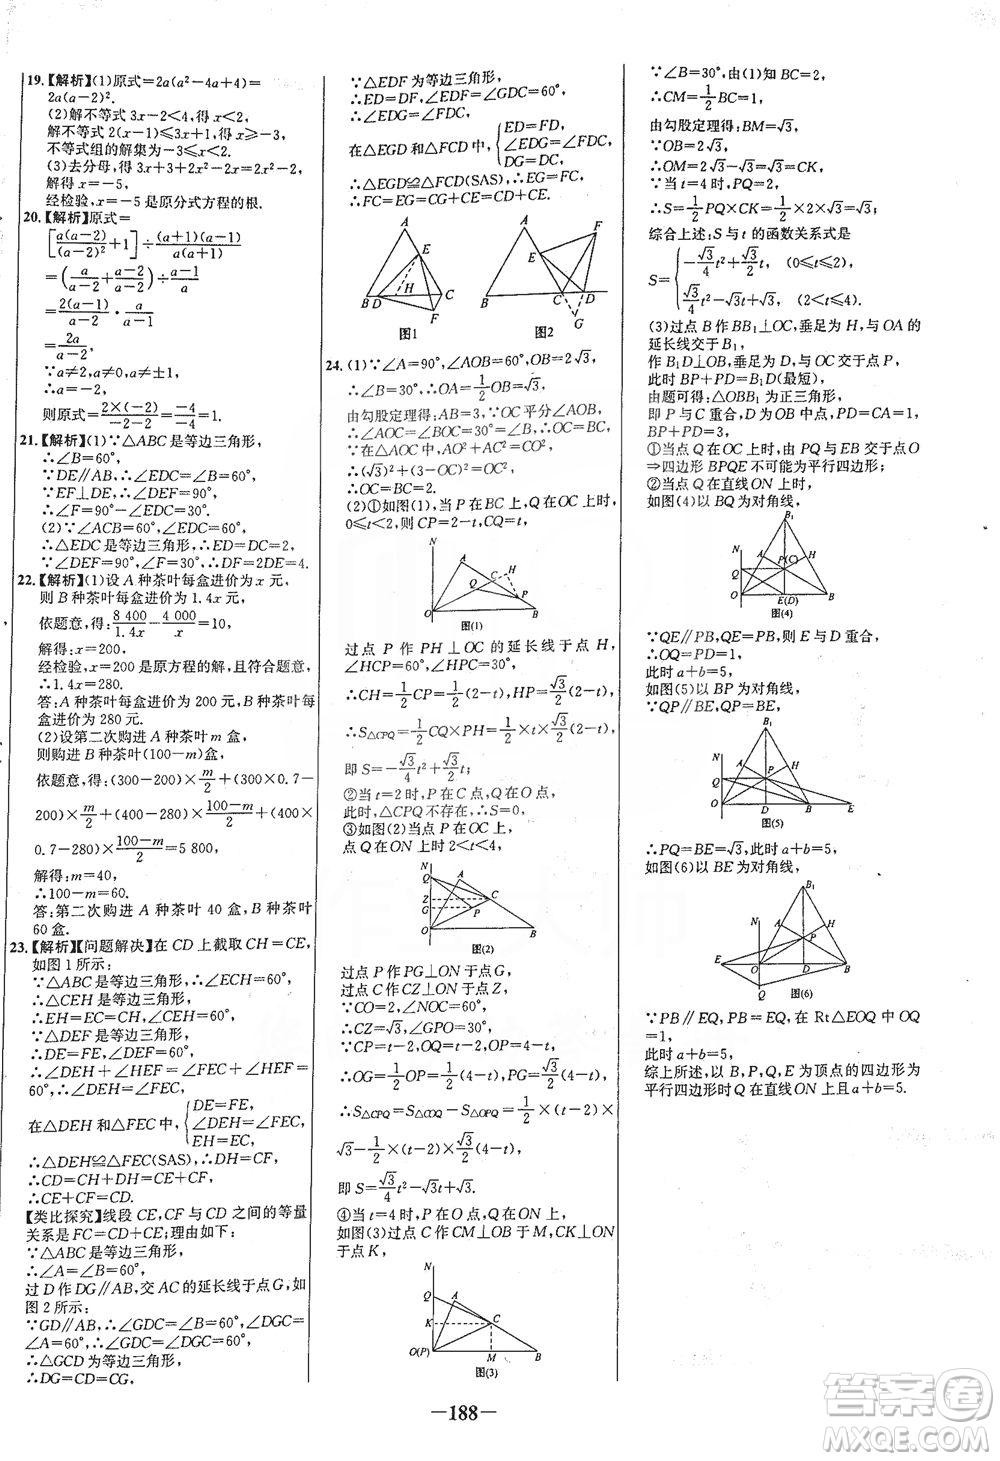 19.【解析】(1)原式=2a(a²-4a+4)=
2a(a-2)².
(2)解不等式 3x-2<4,得 x<2,
解不等式 2(x-1)≤3x+1,得 x≥-3,
不等式组的解集为-3≤x<2.
(3)去分母,得 3x+3+2x²-2x=2x²-2,
解得 x=-5,
经检验,x=-5 是原分式方程的根.
20.【解析】原式=
[a(a-2)/(a-2)²+1]÷(a+1)(a-1)/a(a+1)
=(a/(a-2)+(a-2)/(a-2))÷(a-1)/a
=2(a-1)/(a-2)·a/(a-1)
=2a/(a-2).
∵a≠2,a≠0,a≠±1,
∴a=-2,
则原式=2×(-2)/(-2-2)=-4/-4=1.
21.【解析】(1)∵△ABC 是等边三角形,
∴∠B=60°,
∵DE∥AB,∴∠EDC=∠B=60°,
∵EF⊥DE,∴∠DEF=90°,
∴∠F=90°-∠EDC=30°.
(2)∵∠ACB=60°,∠EDC=60°,
∴△EDC 是等边三角形,∴ED=DC=2,
∵∠DEF=90°,∠F=30°,∴DF=2DE=4.
22.【解析】(1)设 A 种茶叶每盒进价为 x 元,
则 B 种茶叶每盒进价为 1.4x 元,
依题意,得:8 400/1.4x-4 000/x=10,
解得:x=200,
经检验,x=200 是原方程的解,且符合题意,
∴1.4x=280.
答:A 种茶叶每盒进价为 200 元,B 种茶叶每
盒进价为 280 元.
(2)设第二次购进 A 种茶叶 m 盒,
则购进 B 种茶叶(100-m)盒,
依题意,得:(300-200)×m/2+(300×0.7-
200)×m/2+(400-280)×(100-m)/2+(400×
0.7-280)×(100-m)/2=5 800,
解得:m=40,
∴100-m=60.
答:第二次购进 A 种茶叶 40 盒,B 种茶叶
60 盒.
23.【解析】【问题解决】在 CD 上截取 CH=CE,
如图 1 所示:
∵△ABC 是等边三角形,∴∠ECH=60°,
∴△CEH 是等边三角形,
∴EH=EC=CH,∠CEH=60°,
∵△DEF 是等边三角形,
∴DE=FE,∠DEF=60°,
∴∠DEH+∠HEF=∠FEC+∠HEF=60°,
∴∠DEH=∠FEC,
在△DEH 和△FEC 中,{DE=FE,
∠DEH=∠FEC,
EH=EC,
∴△DEH≌△FEC(SAS),∴DH=CF,
∴CD=CH+DH=CE+CF,
∴CE+CF=CD.
【类比探究】线段 CE,CF 与 CD 之间的等量
关系是 FC=CD+CE;理由如下:
∵△ABC 是等边三角形,
∴∠A=∠B=60°,
过 D 作 DG∥AB,交 AC 的延长线于点 G,如
图 2 所示:
∵GD∥AB,∴∠GDC=∠B=60°,∠DGC=
∠A=60°,∴∠GDC=∠DGC=60°,
∴△GCD 为等边三角形,
∴DG=CD=CG,
∵△EDF 为等边三角形,
∴ED=DF,∠EDF=∠GDC=60°,
∴∠EDG=∠FDC,
在△EGD 和△FCD 中,{ED=FD,
∠EDG=∠FDC,
DG=DC,
∴△EGD≌△FCD(SAS),∴EG=FC,
∴FC=EG=CG+CE=CD+CE.
A
E
B D H C
F
图1
A
F
E
B C D
G
图2
24.(1)∵∠A=90°,∠AOB=60°,OB=2√3,
∴∠B=30°,∴OA=1/2 OB=√3,
由勾股定理得:AB=3,∵OC 平分∠AOB,
∴∠AOC=∠BOC=30°,∴OC=BC,
在△AOC 中,AO²+AC²=CO²,
∴(√3)²+(3-OC)²=OC²,
∴OC=BC=2.
(2)①如图(1),当 P 在 BC 上,Q在OC上时,
0≤t<2,则 CP=2-t,CQ=t,
N
A
H
C
Q
P
O B
图(1)
过点 P 作 PH⊥OC 的延长线于点 H,
∠HCP=60°,∠HPC=30°,
∴CH=1/2 CP=1/2(2-t),HP=√3/2(2-t),
∴S△CPQ=1/2 CQ×PH=1/2×t×√3/2(2-t),
即 S=-√3/4 t²+√3/2 t;
②当 t=2 时,P 在 C 点,Q 在 O 点,
此时,△CPQ 不存在,∴S=0,
③如图(2)当点 P 在 OC 上,
点 Q 在 ON 上时 2<t<4,
N
Q
A
Z C
G P
O B
图(2)
过点 P 作 PG⊥ON 于点 G,
过点 C 作 CZ⊥ON 于点 Z,
∵CO=2,∠NOC=60°,
∴CZ=√3,∠GPO=30°,
∵OQ=t-2,OP=4-t,
∴OG=1/2 OP=1/2(4-t),PG=√3/2(4-t),
∴S△CPQ=S△COQ-S△OPQ=1/2×(t-2)×
√3-1/2×(t-2)×√3/2(4-t),
即 S=√3/4 t²-√3t+√3.
④当 t=4 时,P 在 O 点,Q 在 ON 上,
如图(3)过点 C 作 CM⊥OB 于 M,CK⊥ON
于点 K,
N
Q A
K C
O(P) M B
图(3)
∵∠B=30°,由(1)知 BC=2,
∴CM=1/2 BC=1,
由勾股定理得:BM=√3,
∵OB=2√3,
∴OM=2√3-√3=√3=CK,
∵当 t=4 时,PQ=2,
∴S=1/2 PQ×CK=1/2×2×√3=√3,
综合上述:S 与 t 的函数关系式是
S={-√3/4 t²+√3/2 t, (0≤t≤2)
√3/4 t²-√3t+√3, (2<t≤4)
(3)过点 B 作 BB₁⊥OC,垂足为 H,与 OA 的
延长线交于 B₁,
作 B₁D⊥OB,垂足为 D,与 OC 交于点 P,
此时 BP+PD=B₁D(最短),
由题可得:△OBB₁ 为正三角形,
即 P 与 C 重合,D 为 OB 中点,PD=CA=1,
BP+PD=3,
①当点 Q 在 OC 上时,由 PQ 与 EB 交于点O
⇒四边形 BPQE 不可能为平行四边形;
②当点 Q 在直线 ON 上时,
如图(4)以 BQ 为对角线,
B₁
N
A H
Q P(C)
O E(D) B
图(4)
∵QE∥PB,QE=PB,则 E 与 D 重合,
∴OQ=PD=1,
此时 a+b=1;
如图(5)以 BP 为对角线,
∵QP∥BE,QP=BE,
B₁
N
A H
Q P
O D B E
图(5)
∴PQ=BE=√3,
此时 a+b=1+3√3;
如图(6)以 BE 为对角线,
B₁
N
A H
P
E O D B
Q
图(6)
∵PB∥EQ,PB=EQ,在 Rt△EOQ 中 OQ
=1,
此时 a+b=5.
综上所述,以 B、P、Q、E 为顶点的四边形为
平行四边形时 Q 在直线 ON 上且 a+b=5.
—188—
答案卷
MXQE.COM